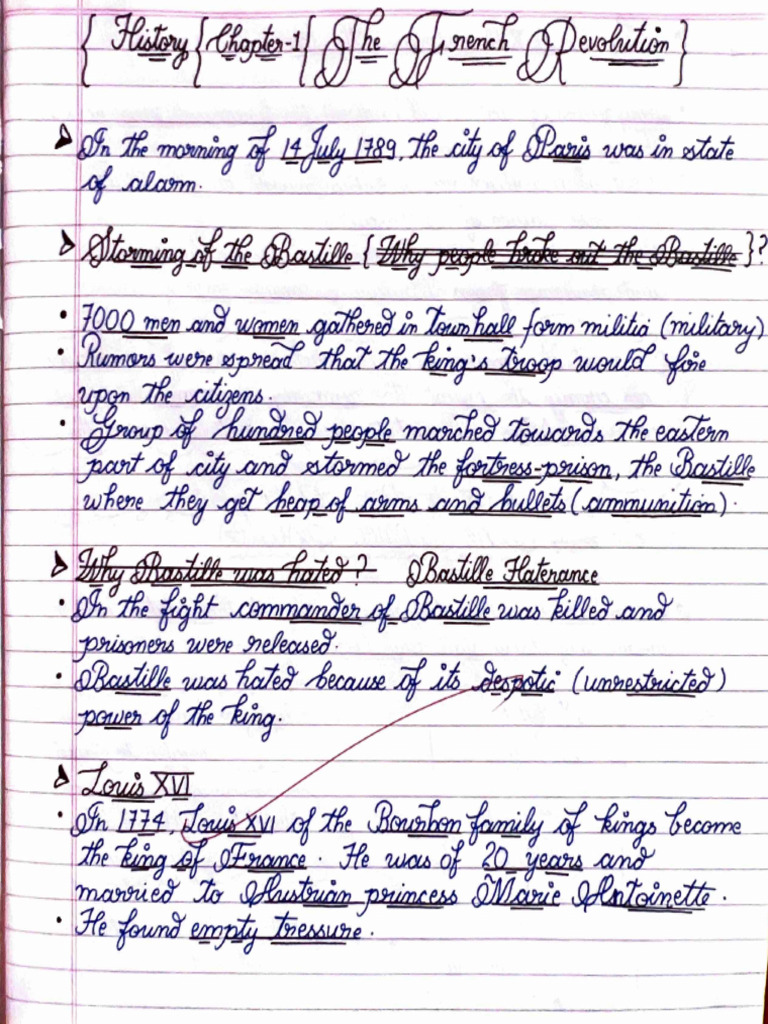 { History { Chapter-1 { The French Revolution }
In the morning of 14 July 1789, the city of Paris was in state
of alarm.
Storming of the Bastille { Why people broke out the Bastille }?
• 7000 men and women gathered in townhall form militia (military)
• Rumors were spread that the king's troop would fire
upon the citizens.
• Group of hundred people marched towards the eastern
part of city and stormed the fortress-prison, the Bastille
where they get heap of arms and bullets (ammunition).
Why Bastille was hated? Bastille Haterance
• In the fight commander of Bastille was killed and
prisoners were released.
• Bastille was hated because of its despotic (unrestricted)
power of the king.
Louis XVI
• In 1774, Louis XVI of the Bourbon family of kings become
the king of France. He was of 20 years and
married to Austrian princess Marie Antoinette.
• He found empty tressure.